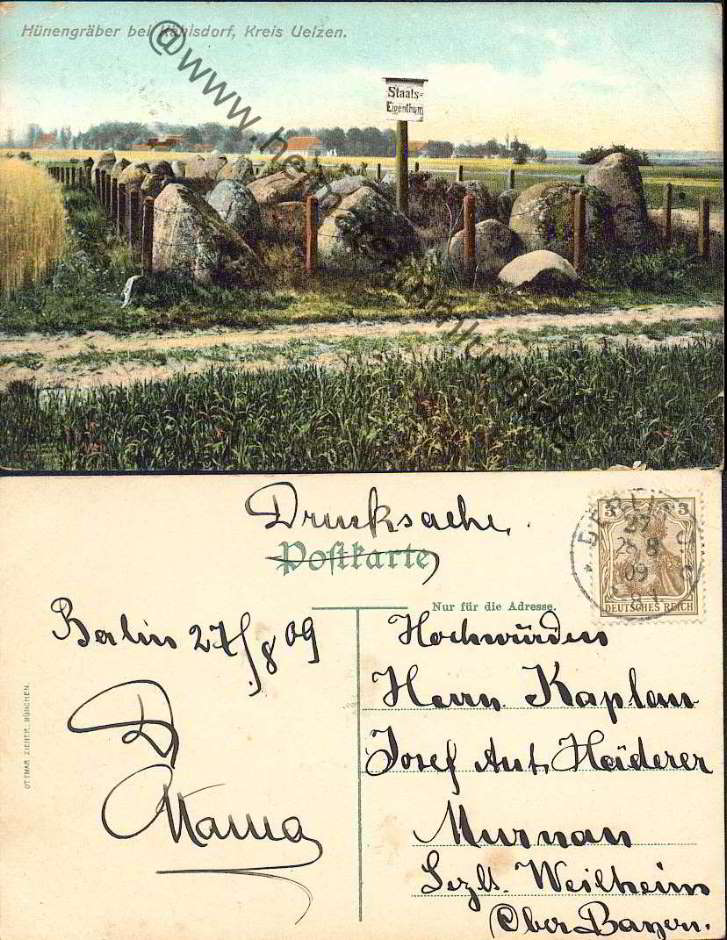 Hünengräber bei Kahlsdorf, Kreis Uelzen.
Staats=
Eigenthum
Drucksache.
Postkarte
Nur für die Adresse.
Berlin 27/8 09
Hochwürden
Herrn Kaplan
Josef Ant. Heiderer
Murnau
Bezb. Weilheim
Ober Bayern.
BERLIN
27
8
09
3 3
DEUTSCHES REICH
OTTMAR ZIEHER, MÜNCHEN.